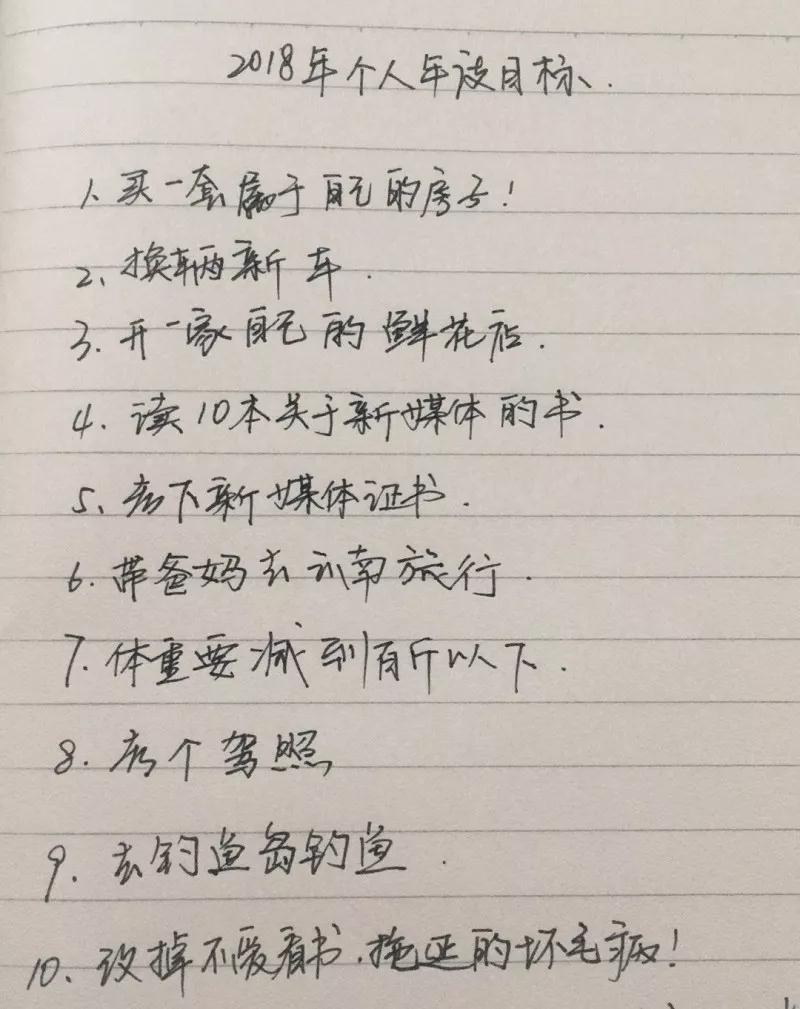 2018年个人年度目标.
1、买一套属于自己的房子!
2、换辆新车.
3.开一家自己的鲜花店.
4.读10本关于新媒体的书.
5、考下新媒体证书.
6.带爸妈去云南旅行.
7.体重要减到百斤以下.
8.考个驾照
9.去钓鱼岛钓鱼.
10、改掉不爱看书、拖延的坏毛病!